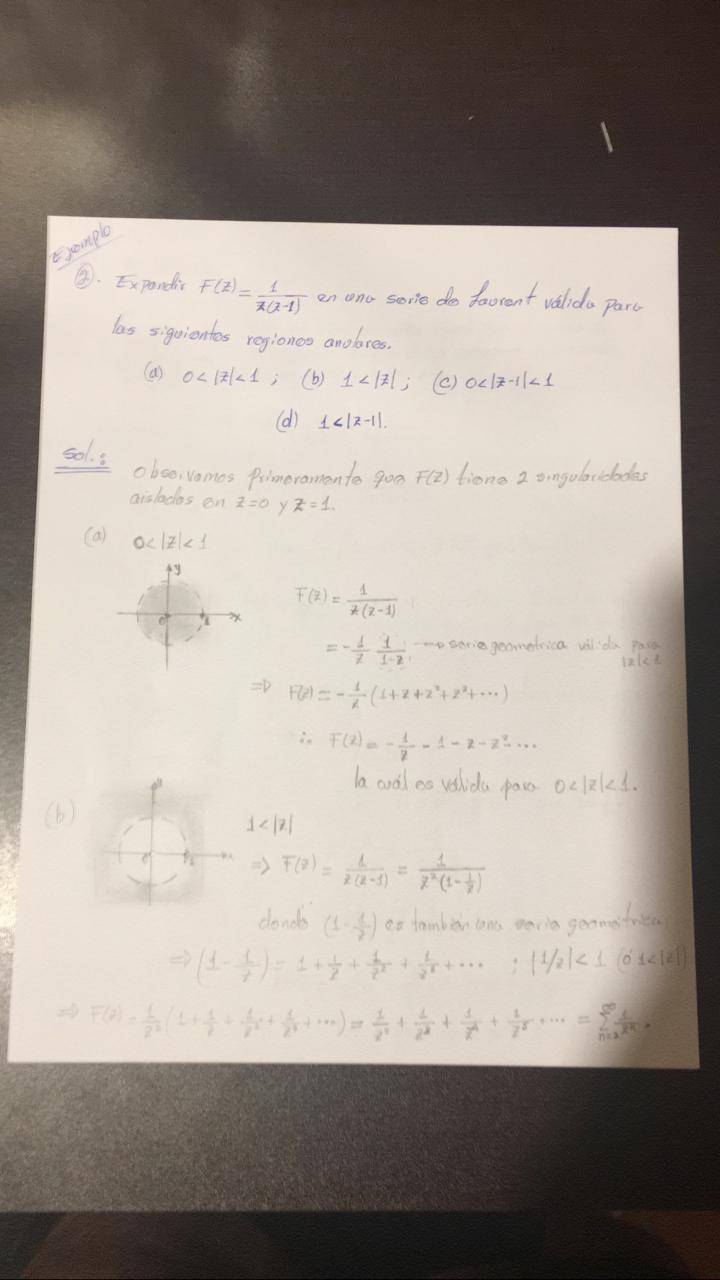 Ejemplo
②. Expandir F(z) = 1/(z(z-1)) en una serie de Laurent válida para
las siguientes regiones anulares.
(a) 0<|z|<1 ; (b) 1<|z| ; (c) 0<|z-1|<1
(d) 1<|z-1|.
Sol.:
Observamos primeramente que F(z) tiene 2 singularidades
aisladas en z=0 y z=1.
(a) 0<|z|<1
y
0 1 x
F(z) = 1/(z(z-1))
= -1/z 1/(1-z) → serie geometrica válida para
|z|<1
⇒ F(z) = -1/z (1+z+z²+z³+⋯)
∴ F(z) = -1/z - 1 - z - z² - ⋯
la cuál es válida para 0<|z|<1.
(b)
y
0 1 x
1<|z|
⇒ F(z) = 1/(z(z-1)) = 1/(z²(1-1/z))
donde (1-1/z) es también una serie geométrica
⇒ (1-1/z) = 1 + 1/z + 1/z² + 1/z³ + ⋯ ; |1/z|<1 (ó 1<|z|)
⇒ F(z) = 1/z² (1 + 1/z + 1/z² + 1/z³ + ⋯) = 1/z² + 1/z³ + 1/z⁴ + 1/z⁵ + ⋯ = ∞∑n=2 1/zⁿ.